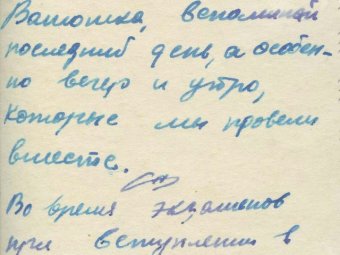 Ватошка, вспоминай
последний день, а особен-
но вечер и утро,
которые мы провели
вместе.
Во время экзаменов
при вступлении в